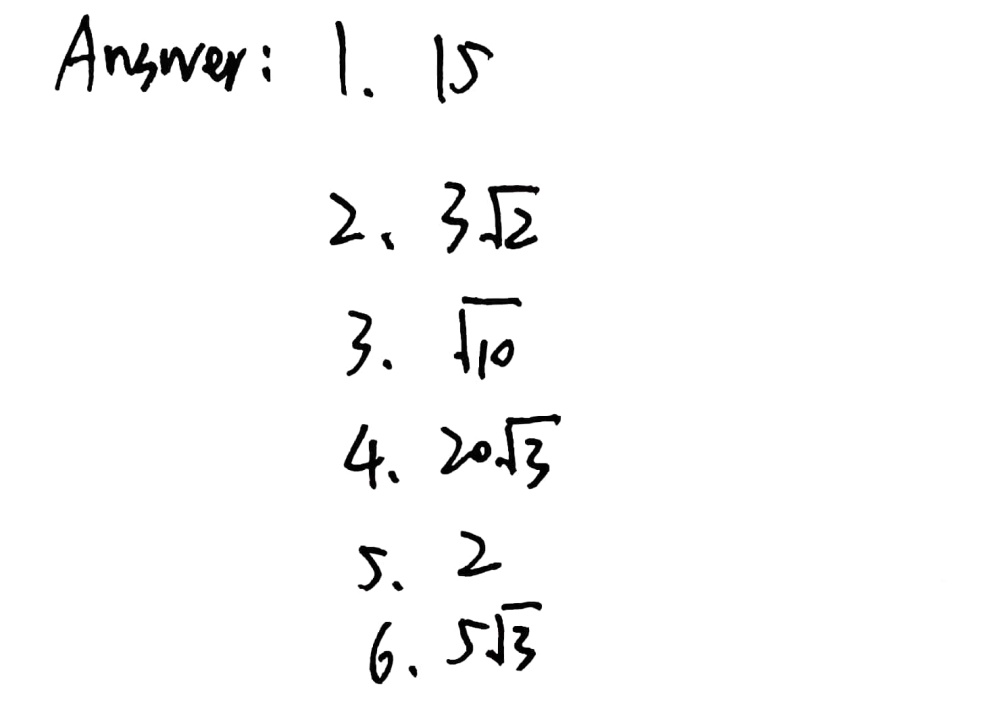 Answer: 1. 15
2. 3√2
3. √10
4. 20√3
5. 2
6. 5√3